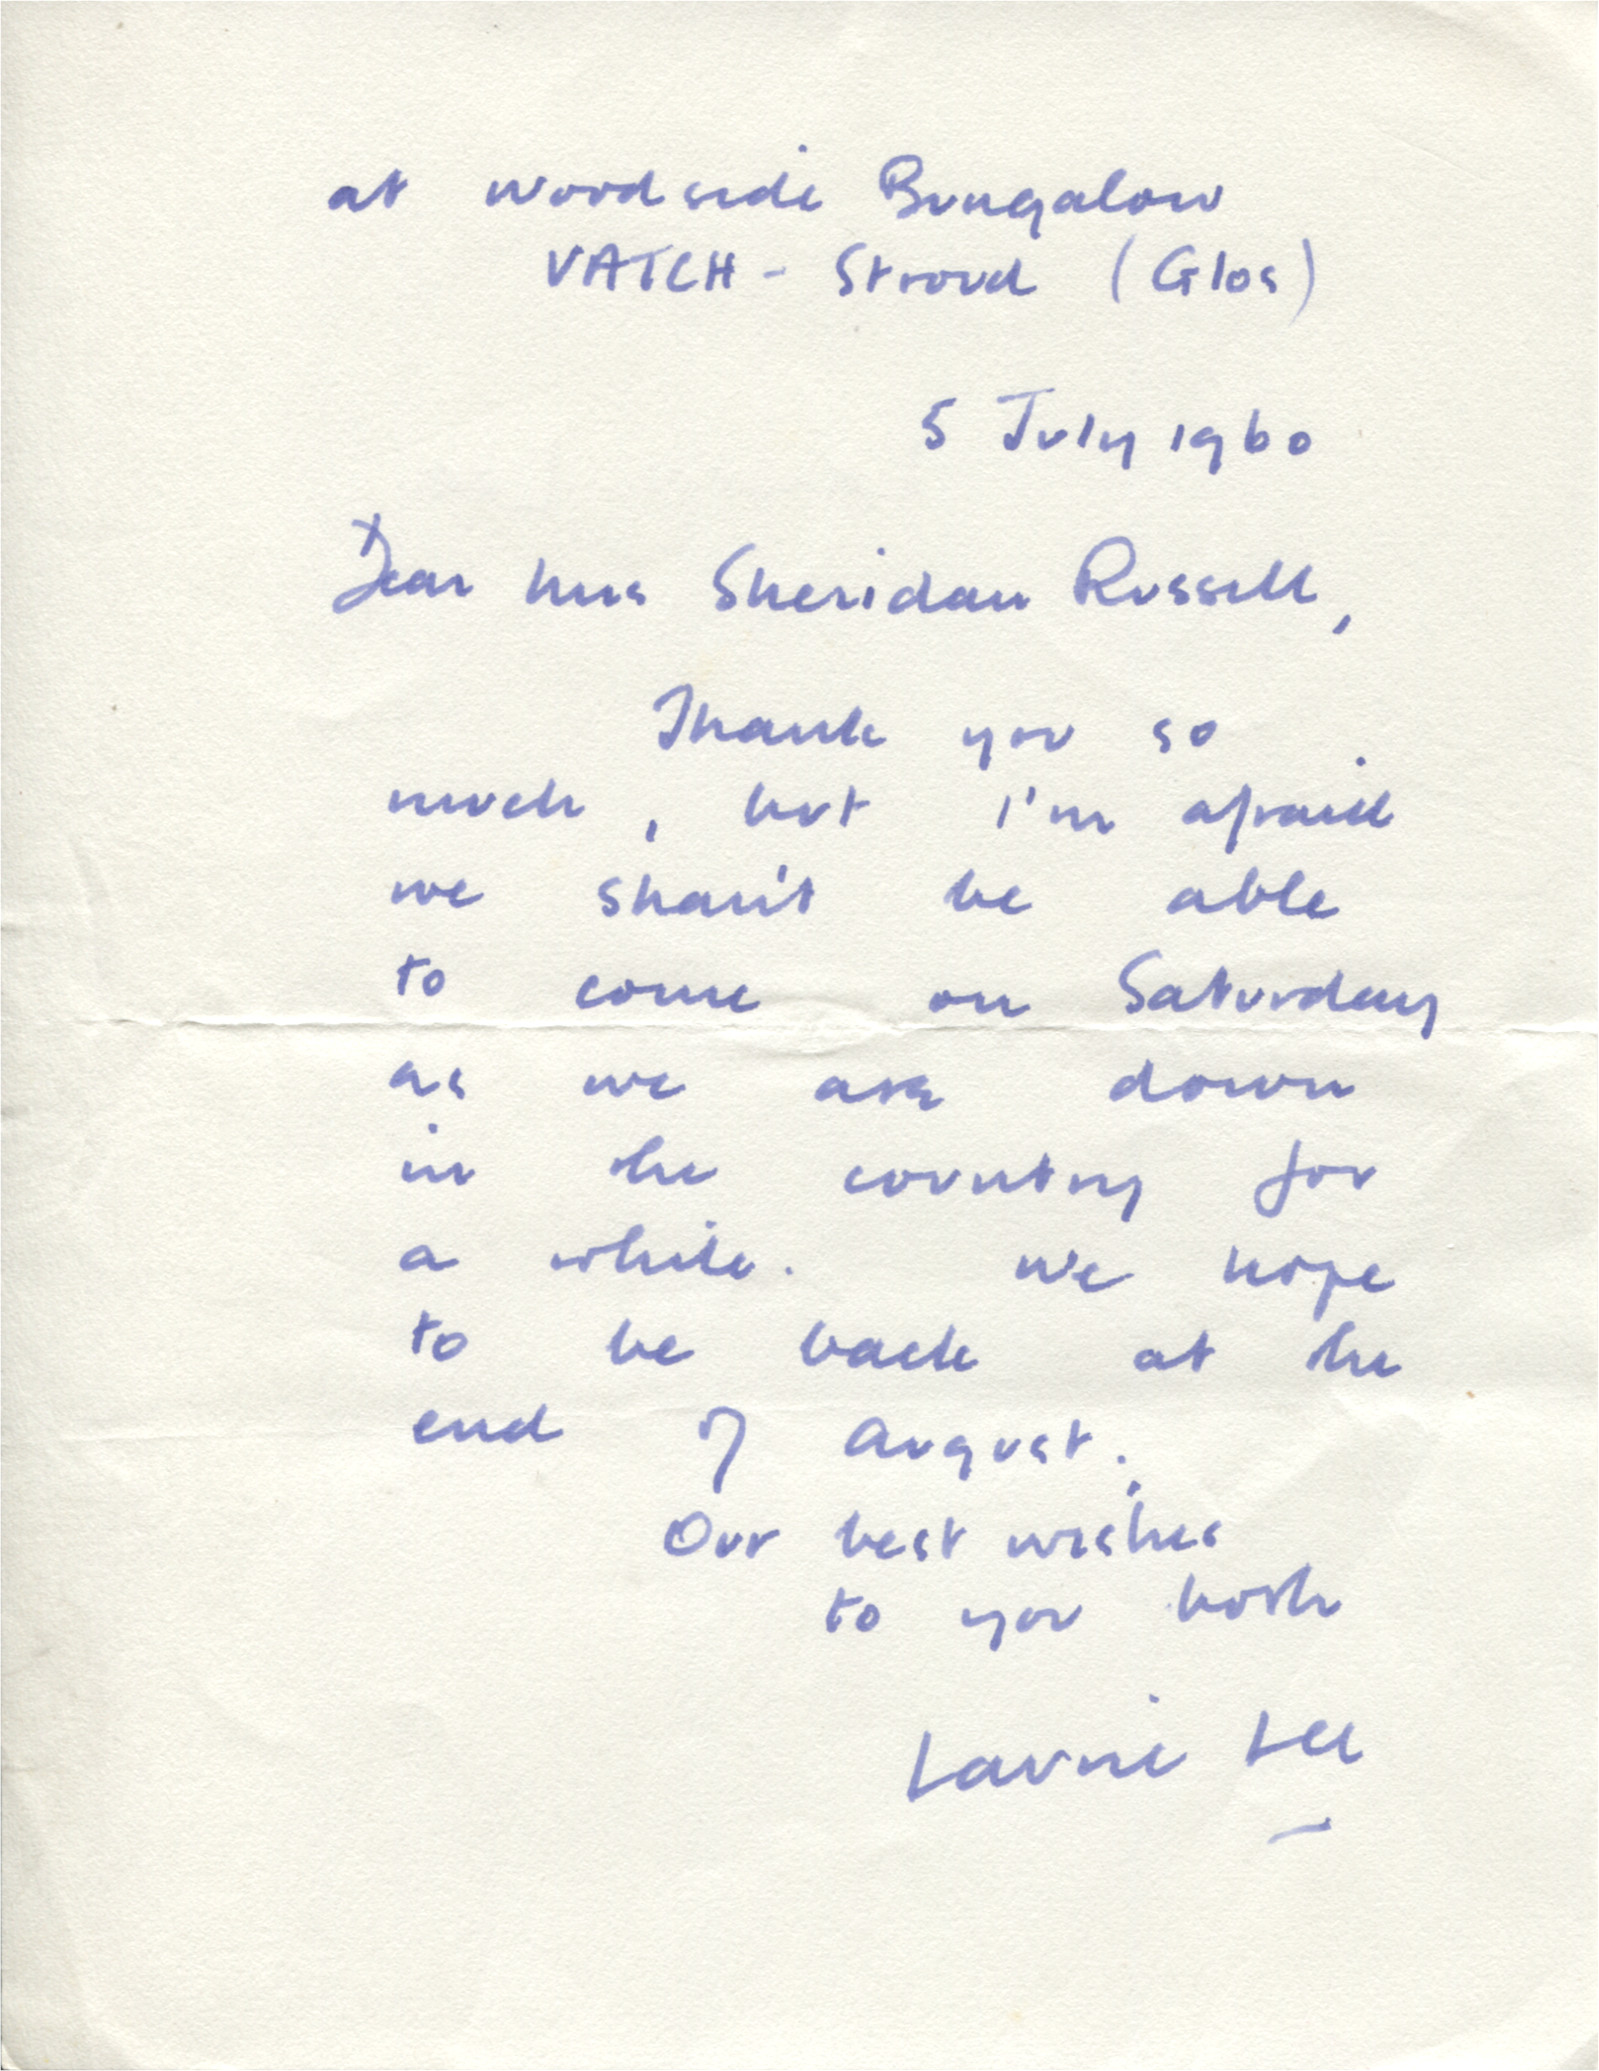 at Woodside Bungalow
VATCH - Stroud (Glos)
5 July 1960
Dear Mrs Sheridan Russell,
Thank you so
much, but I'm afraid
we shan't be able
to come on Saturday
as we are down
in the country for
a while. We hope
to be back at the
end of August.
Our best wishes
to you both
Laurie Lee